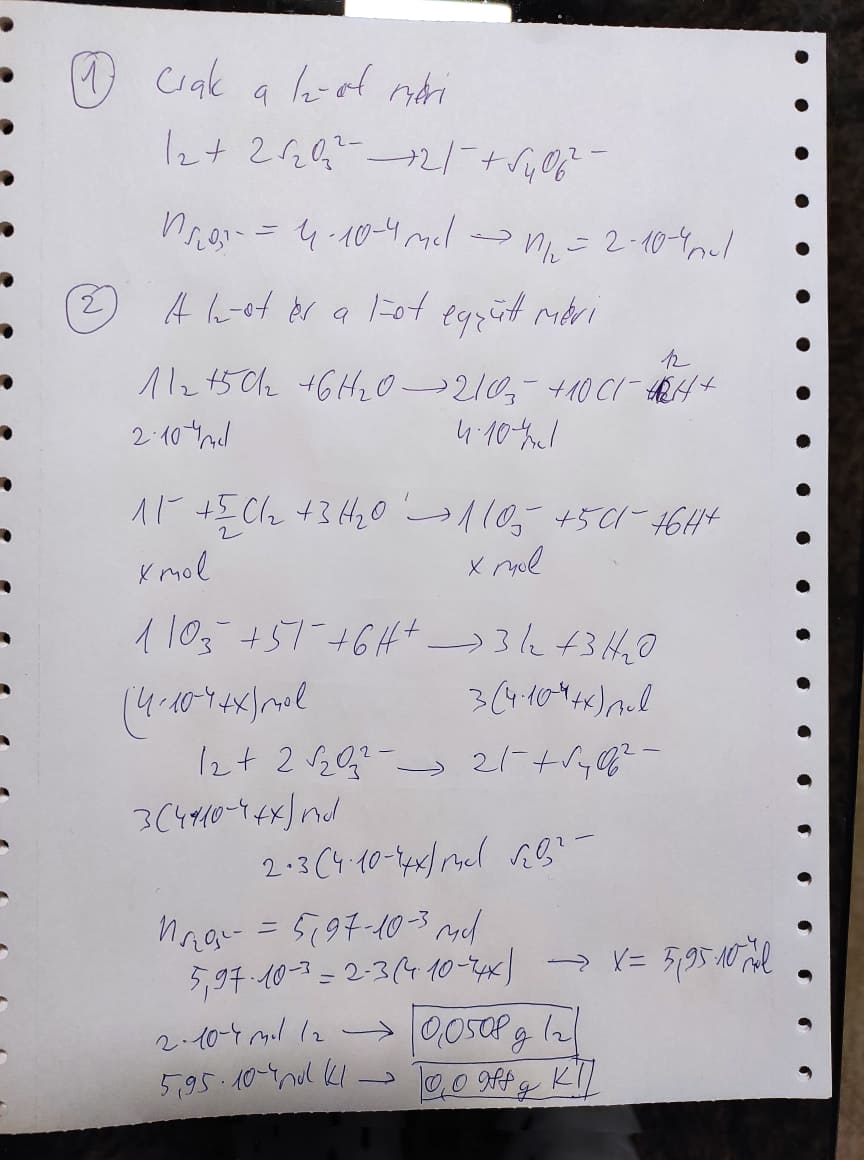 ① Csak a I₂-ot méri
I₂ + 2 S₂O₃²⁻ → 2I⁻ + S₄O₆²⁻
n S₂O₃²⁻ = 4·10⁻⁴ mol → n I₂ = 2·10⁻⁴ mol
② A I₂-ot és a I⁻-ot együtt méri
1 I₂ + 5Cl₂ + 6H₂O → 2IO₃⁻ + 10Cl⁻ + 12H⁺
2·10⁻⁴ mol 4·10⁻⁴ mol
1 I⁻ + 5/2 Cl₂ + 3H₂O → 1 IO₃⁻ + 5Cl⁻ + 6H⁺
x mol x mol
1 IO₃⁻ + 5I⁻ + 6H⁺ → 3I₂ + 3H₂O
(4·10⁻⁴+x) mol 3(4·10⁻⁴+x) mol
I₂ + 2 S₂O₃²⁻ → 2I⁻ + S₄O₆²⁻
3(4·10⁻⁴+x) mol
2·3(4·10⁻⁴+x) mol S₂O₃²⁻
n S₂O₃²⁻ = 5,97·10⁻³ mol
5,97·10⁻³ = 2·3(4·10⁻⁴+x) → x = 5,95·10⁻⁴ mol
2·10⁻⁴ mol I₂ → 0,0508 g I₂
5,95·10⁻⁴ mol KI → 0,0988 g KI